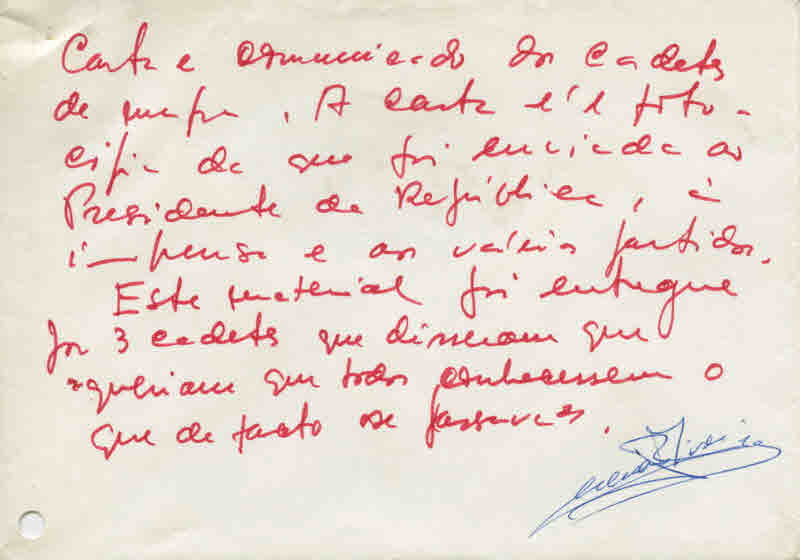 Carta e comunicado dos cadetes
de Mafra. A carta é a foto-
cópia da que foi enviada ao
Presidente da República, à
imprensa e aos vários partidos.
Este material foi entregue
por 3 cadetes que disseram que
queriam que todos conhecessem o
que de facto se passava.